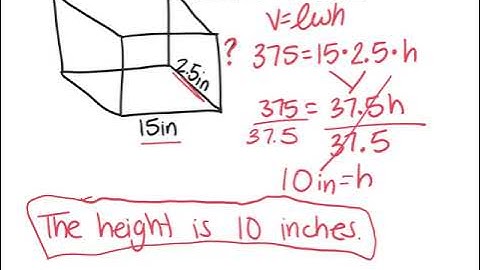 V=lwh
? 375=15·2.5·h
2.5in
375 = 37.5h
37.5 37.5
15in
10in=h
The height is 10 inches.